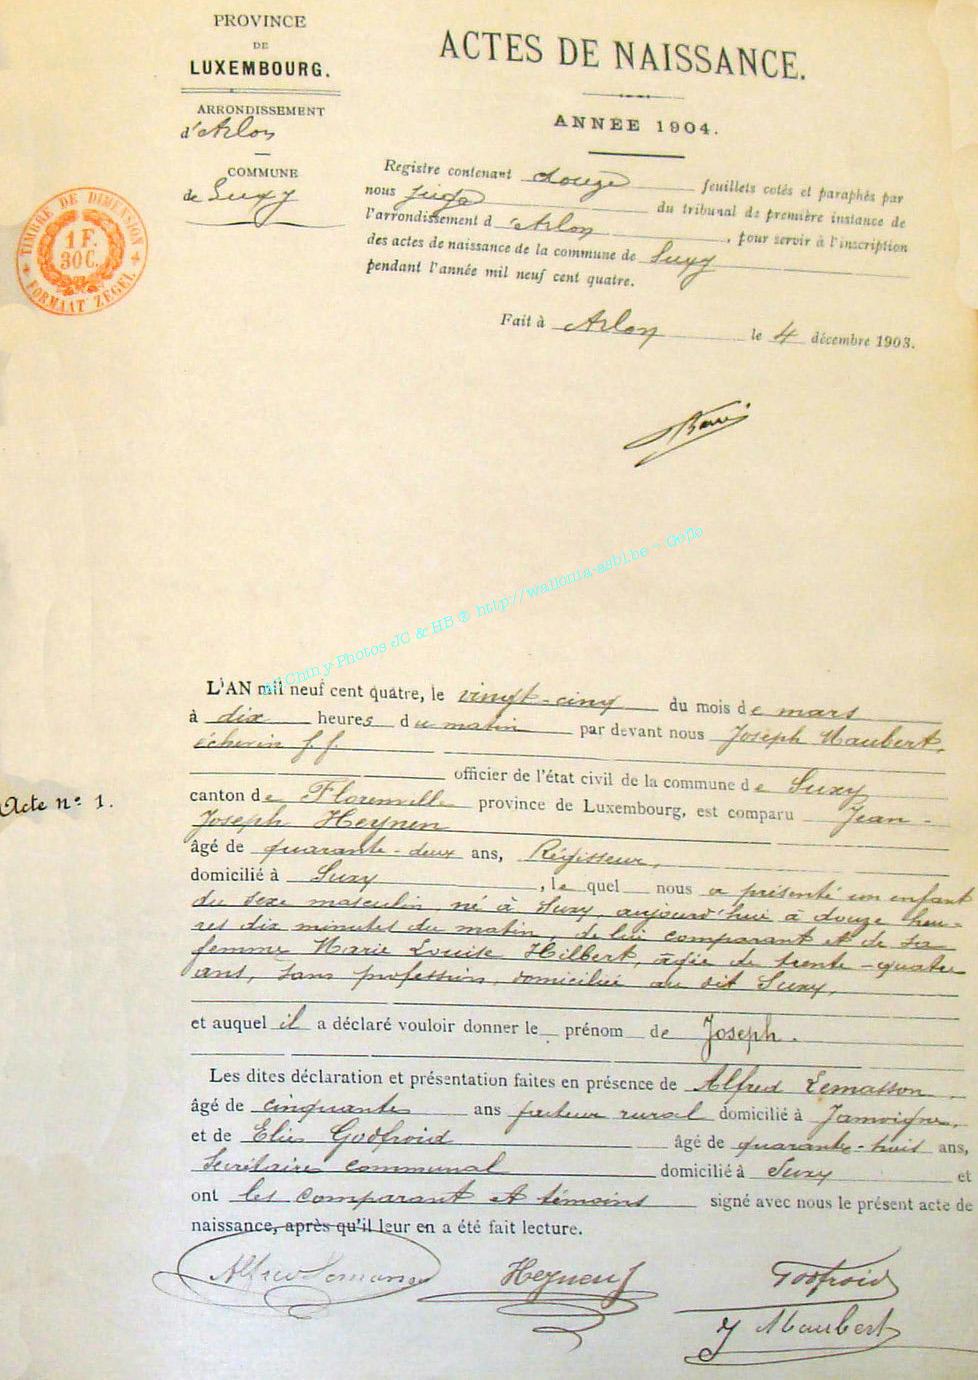 PROVINCE
DE
LUXEMBOURG.
ARRONDISSEMENT
d'Arlon
COMMUNE
de Suxy
TIMBRE DE DIMENSION
1 F.
30 C.
FORMAAT ZEGEL
ACTES DE NAISSANCE.
ANNÉE 1904.
Registre contenant douze feuillets cotés et paraphés par
nous juge du tribunal de première instance de
l'arrondissement d'Arlon, pour servir à l'inscription
des actes de naissance de la commune de Suxy
pendant l'année mil neuf cent quatre.
Fait à Arlon le 4 décembre 1903.
Chiny Photos JC & HB ® http://wallonia-asbl.be - Goflo
L'AN mil neuf cent quatre, le vingt-cinq du mois de mars
à dix heures du matin par devant nous Joseph Maubert,
échevin f.f.
officier de l'état civil de la commune de Suxy
Acte n° 1.
canton de Florenville province de Luxembourg, est comparu Jean-
Joseph Heynen
âgé de quarante-deux ans, Régisseur,
domicilié à Suxy, le quel nous a présenté un enfant
du sexe masculin, né à Suxy, aujourd'hui à douze heu-
res dix minutes du matin, de lui comparant et de sa
femme Marie Louise Hilbert, âgée de trente-quatre
ans, sans profession, domiciliée au dit Suxy,
et auquel il a déclaré vouloir donner le prénom de Joseph.
Les dites déclaration et présentation faites en présence de Alfred Lemasson
âgé de cinquante ans facteur rural domicilié à Jamoigne,
et de Elie Godfroid âgé de quarante-huit ans,
Secrétaire communal domicilié à Suxy et
ont les comparant et témoins signé avec nous le présent acte de
naissance, après qu'il leur en a été fait lecture.
Alfred Lemasson Heynen J Godfroid
J Maubert